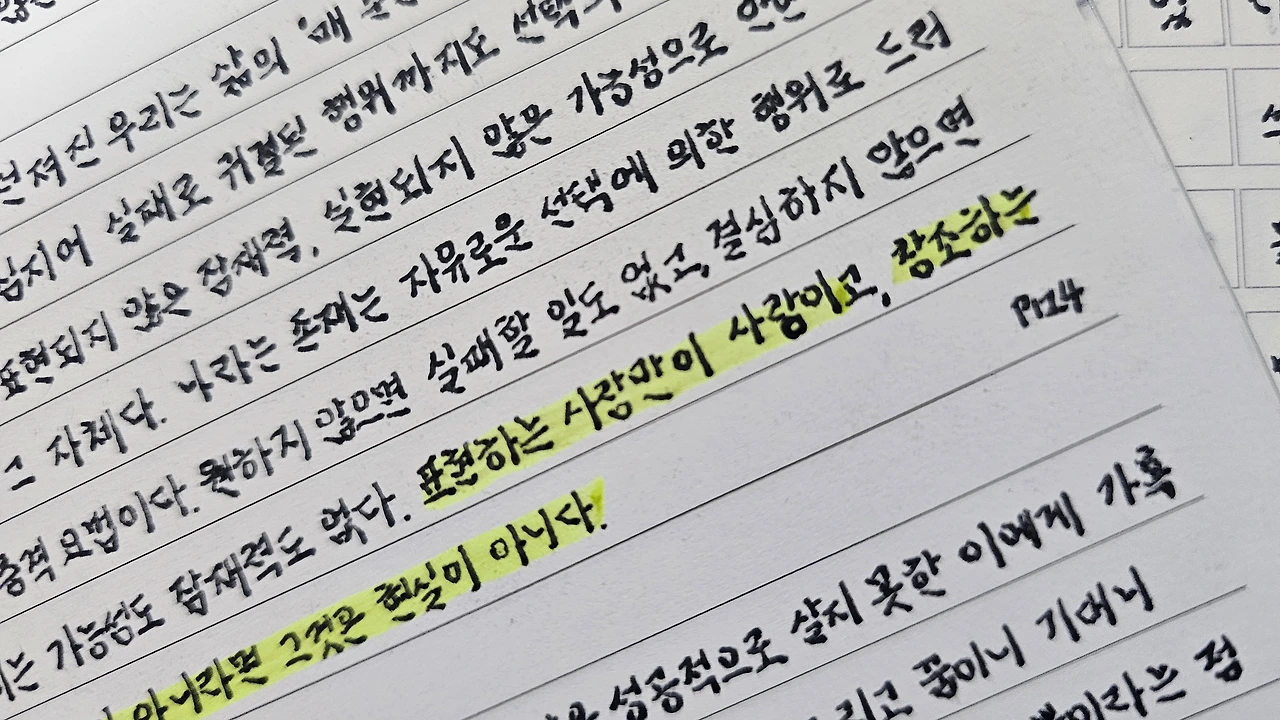 던져진 우리는 삶의 '매 순
심지어 실패로 귀결된 행위까지도 선택
표현되지 않은 잠재적, 실현되지 않은 가능성으로
그 자체다. 나라는 존재는 자유로운 선택에 의한 행위로 드러
충격 요법이다. 원하지 않으면 실패할 일도 없고, 결심하지 않으면
는 가능성도 잠재적도 없다. 표현하는 사랑만이 사랑이고, 창조하는
아니라면 그것은 현실이 아니다.
P124
성공적으로 살지 못한 이에게 가혹
리고 품이니 기머니
이라는 점